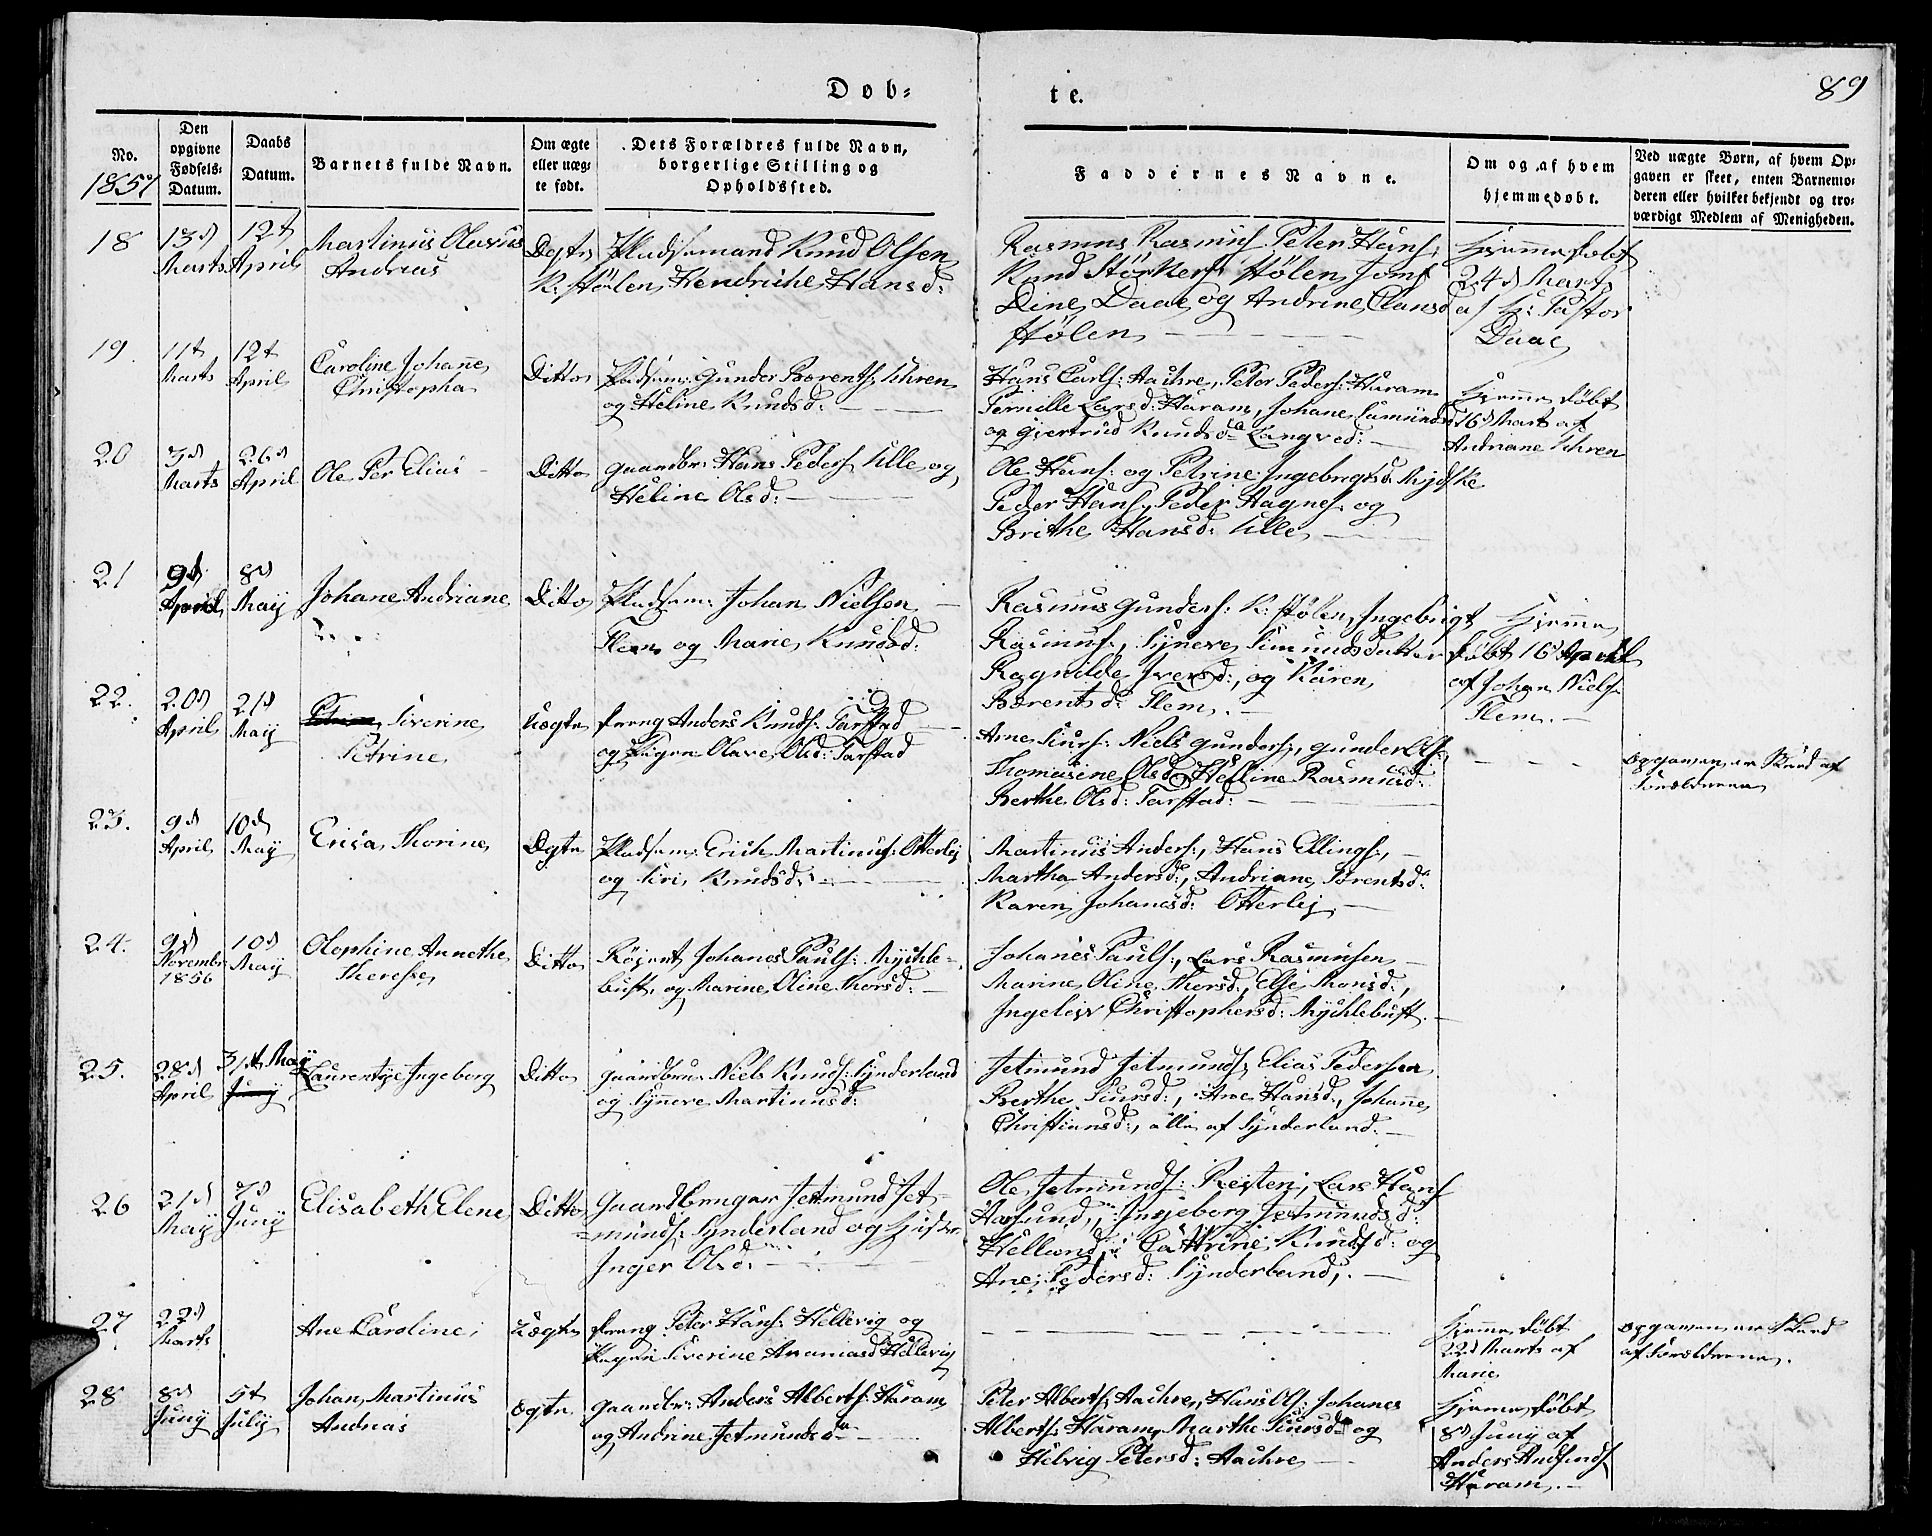 Døb=
te.
89
No.
1857
Den
opgivne
Fødsels=
Datum.
Daabs
Datum.
Barnets fulde Navn.
Om ægte
eller uæg=
te født.
Dets Forældres fulde Navn,
borgerlige Stilling og
Opholdssted.
Faddernes Navne.
Om og af hvem
hjemmedøbt.
Ved uægte Børn, af hvem Op=
gaven er skeet, enten Barnemo=
deren eller hvilket bekjendt og tro=
værdigt Medlem af Menigheden.
18
13d
Marts
12t
April
Martinus Olavus
Andreas
Ægte
Pladsemand Knud Olsen
K: Stølen, Hendrikke Hansd:
Rasmus Rasmuss: Peter Hans:
Knud Størkers: Stølen, Jomf
Dine Daae og Andrine Clausd
Stølen
Hjemmedøbt
24d Marts
af H: Pastor
Daae
19.
11t
Marts
12t
April
Caroline Johanne
Christopha
Ditto
Pladsm: Gunder Berents: Uhren
og Heline Knudsd:
Hans Carls: Aachre, Peter Peders: Haram
Pernille Larsd: Haram, Johane Samundsd
og Giertrud Knudsd: Langved:
Hjemmedøbt
16d Marts af
Andriane Uhren
20
3d
Marts
26d
April
Ole Per Elias
Ditto
Gaardbr: Hans Peders: Ulle og
Heline Olsd:
Ole Hans: og Petrine Ingebrigtsd:
Peder Hans, Peder Hagnes: og
Brithe Hansd: Ulle
21
9d
April
8d
May
Johane Andriane
Ditto
Pladsm: Johan Nielsen
Flem og Marie Knudsd:
Rasmus Gunders: K: Stølen, Ingebrigt
Rasmus:, Synere Simundsdatter
Ragnilde Iversd:, og Karen
Berentsd: Flem.
Hjemme
døbt 16d April
af Johan Niels:
Flem.
22.
20d
April
21d
May
Siverine
Petrine
Uægte
Dreng Anders Knuds: Farstad
og Pigen Olave Olsd: Farstad
Arne Siurs: Niels Gunders:, Gunder Ols:
Thomasine Olsd: Helline Rasmusd:
Berthe Olsd: Farstad:
Opgaven er skeed af
Forældrene
23.
9d
April
10d
May
Erica Thorine
Ægte
Pladsm: Erich Martinus: Otterlej
og Siri Knudsd:
Martinus Anders:, Hans Ellings:,
Martha Andersd:, Andriane Berentsd:
Karen Johanesd: Otterlej
24.
9d
Novembr
1856
10d
May
Olophine Annethe
Therese
Ditto
Johanes Pauls: Mychle=
bust, og Marine Oline Thorsd:
Johanes Pauls:, Lars Rasmusen
Marine Oline Thorsd:, Else Monsd:,
Ingeleiv Christophersd: Mychlebust.
25.
28d
April
31t May
Juny
Laurentze Ingeborg
Ditto
Gaardbru: Niels Knuds: Synderland
og Synere Martinusd:
Jetmund Jetmunds, Elias Pedersen
Berthe Siursd:, Ane Hansd:, Johane
Christiansd:, alle af Synderland.
26
21d
May
7d
Juny
Elisabeth Elene
Ditto
Gaardbruger Jetmund Jet=
=munds: Synderland og Hustru
Inger Olsd:
Ole Jetmunds: Reisten, Lars Hans
Ingeborg Jetmundsd:
Helland, Cathrine Knudsd: og
Ane Pedersd: Synderland.
27
22d
Marts
Ane Caroline
Uægte
Dreng Peter Hans: Hellevig og
Pigen Siverine Ananiasd Hellevig
Hjemmedøbt
22d Marts af
Marie
Opgaven er skeed
af Forældrene.
28
8d
Juny
5t
July
Johan Martinus
Andreas
Ægte
Gaardbr: Anders Alberts: Haram
og Andrine Jetmundsd:
Peter Alberts: Aachre, Hans Ols: Johanes
Alberts: Haram, Marthe Siursd: og
Helvig Petersd: Aachre
Hjemmedøbt
8d Juny af
Anders
Haram.